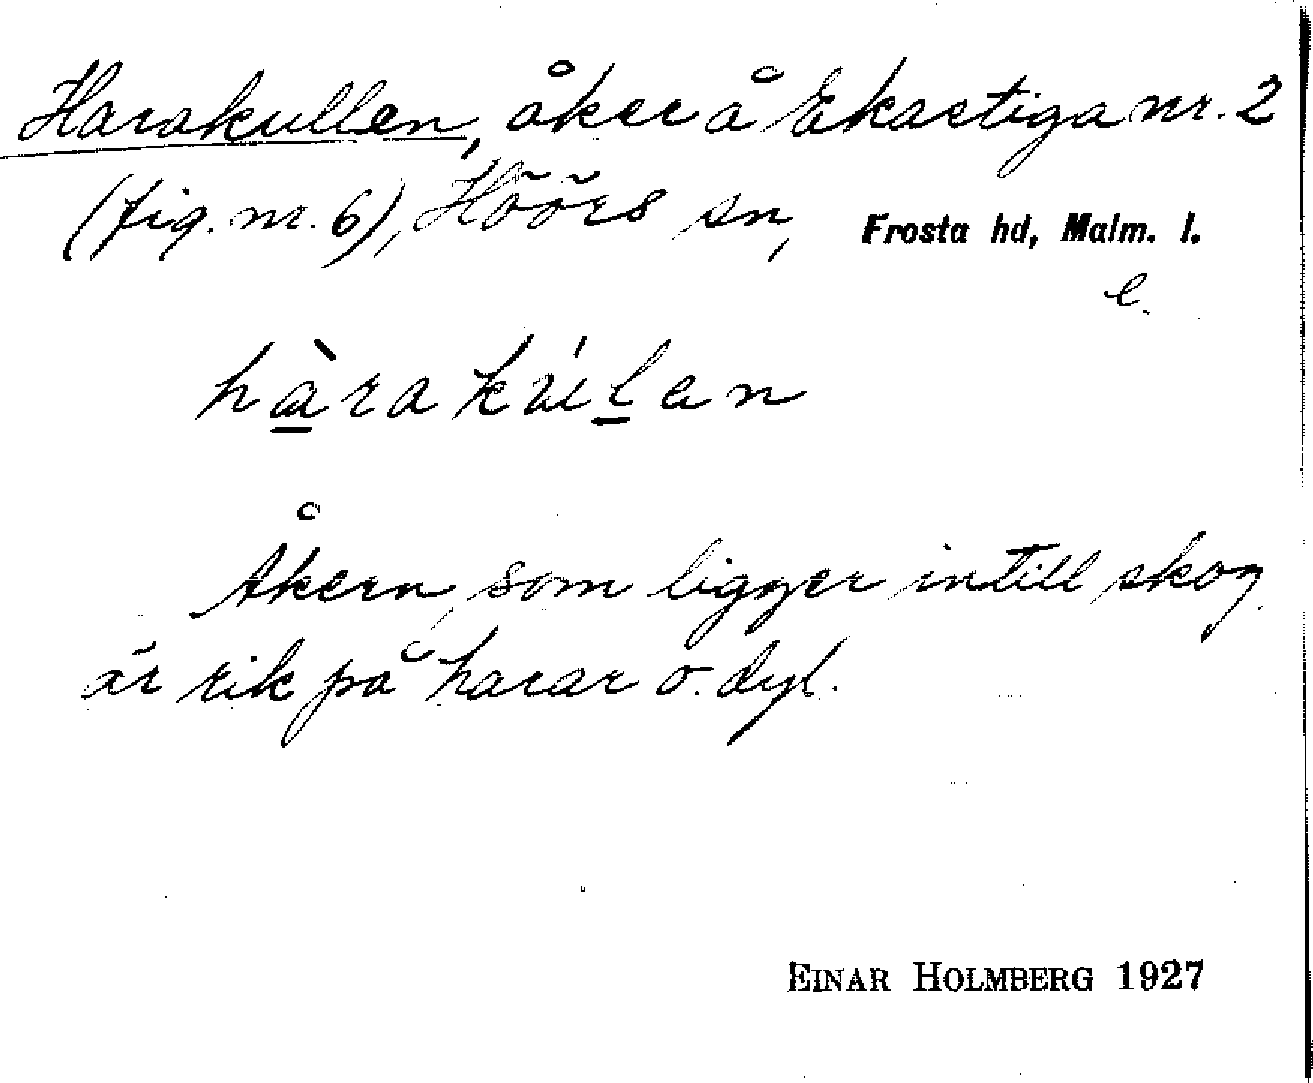 Harakullen, åker å Ekastiga nr. 2
(fig. nr. 6), Höörs sn, Frosta hd, Malm. l.
e.
hàrakúlen
Åkern, som ligger intill skog
är rik på harar o. dyl.
EINAR HOLMBERG 1927